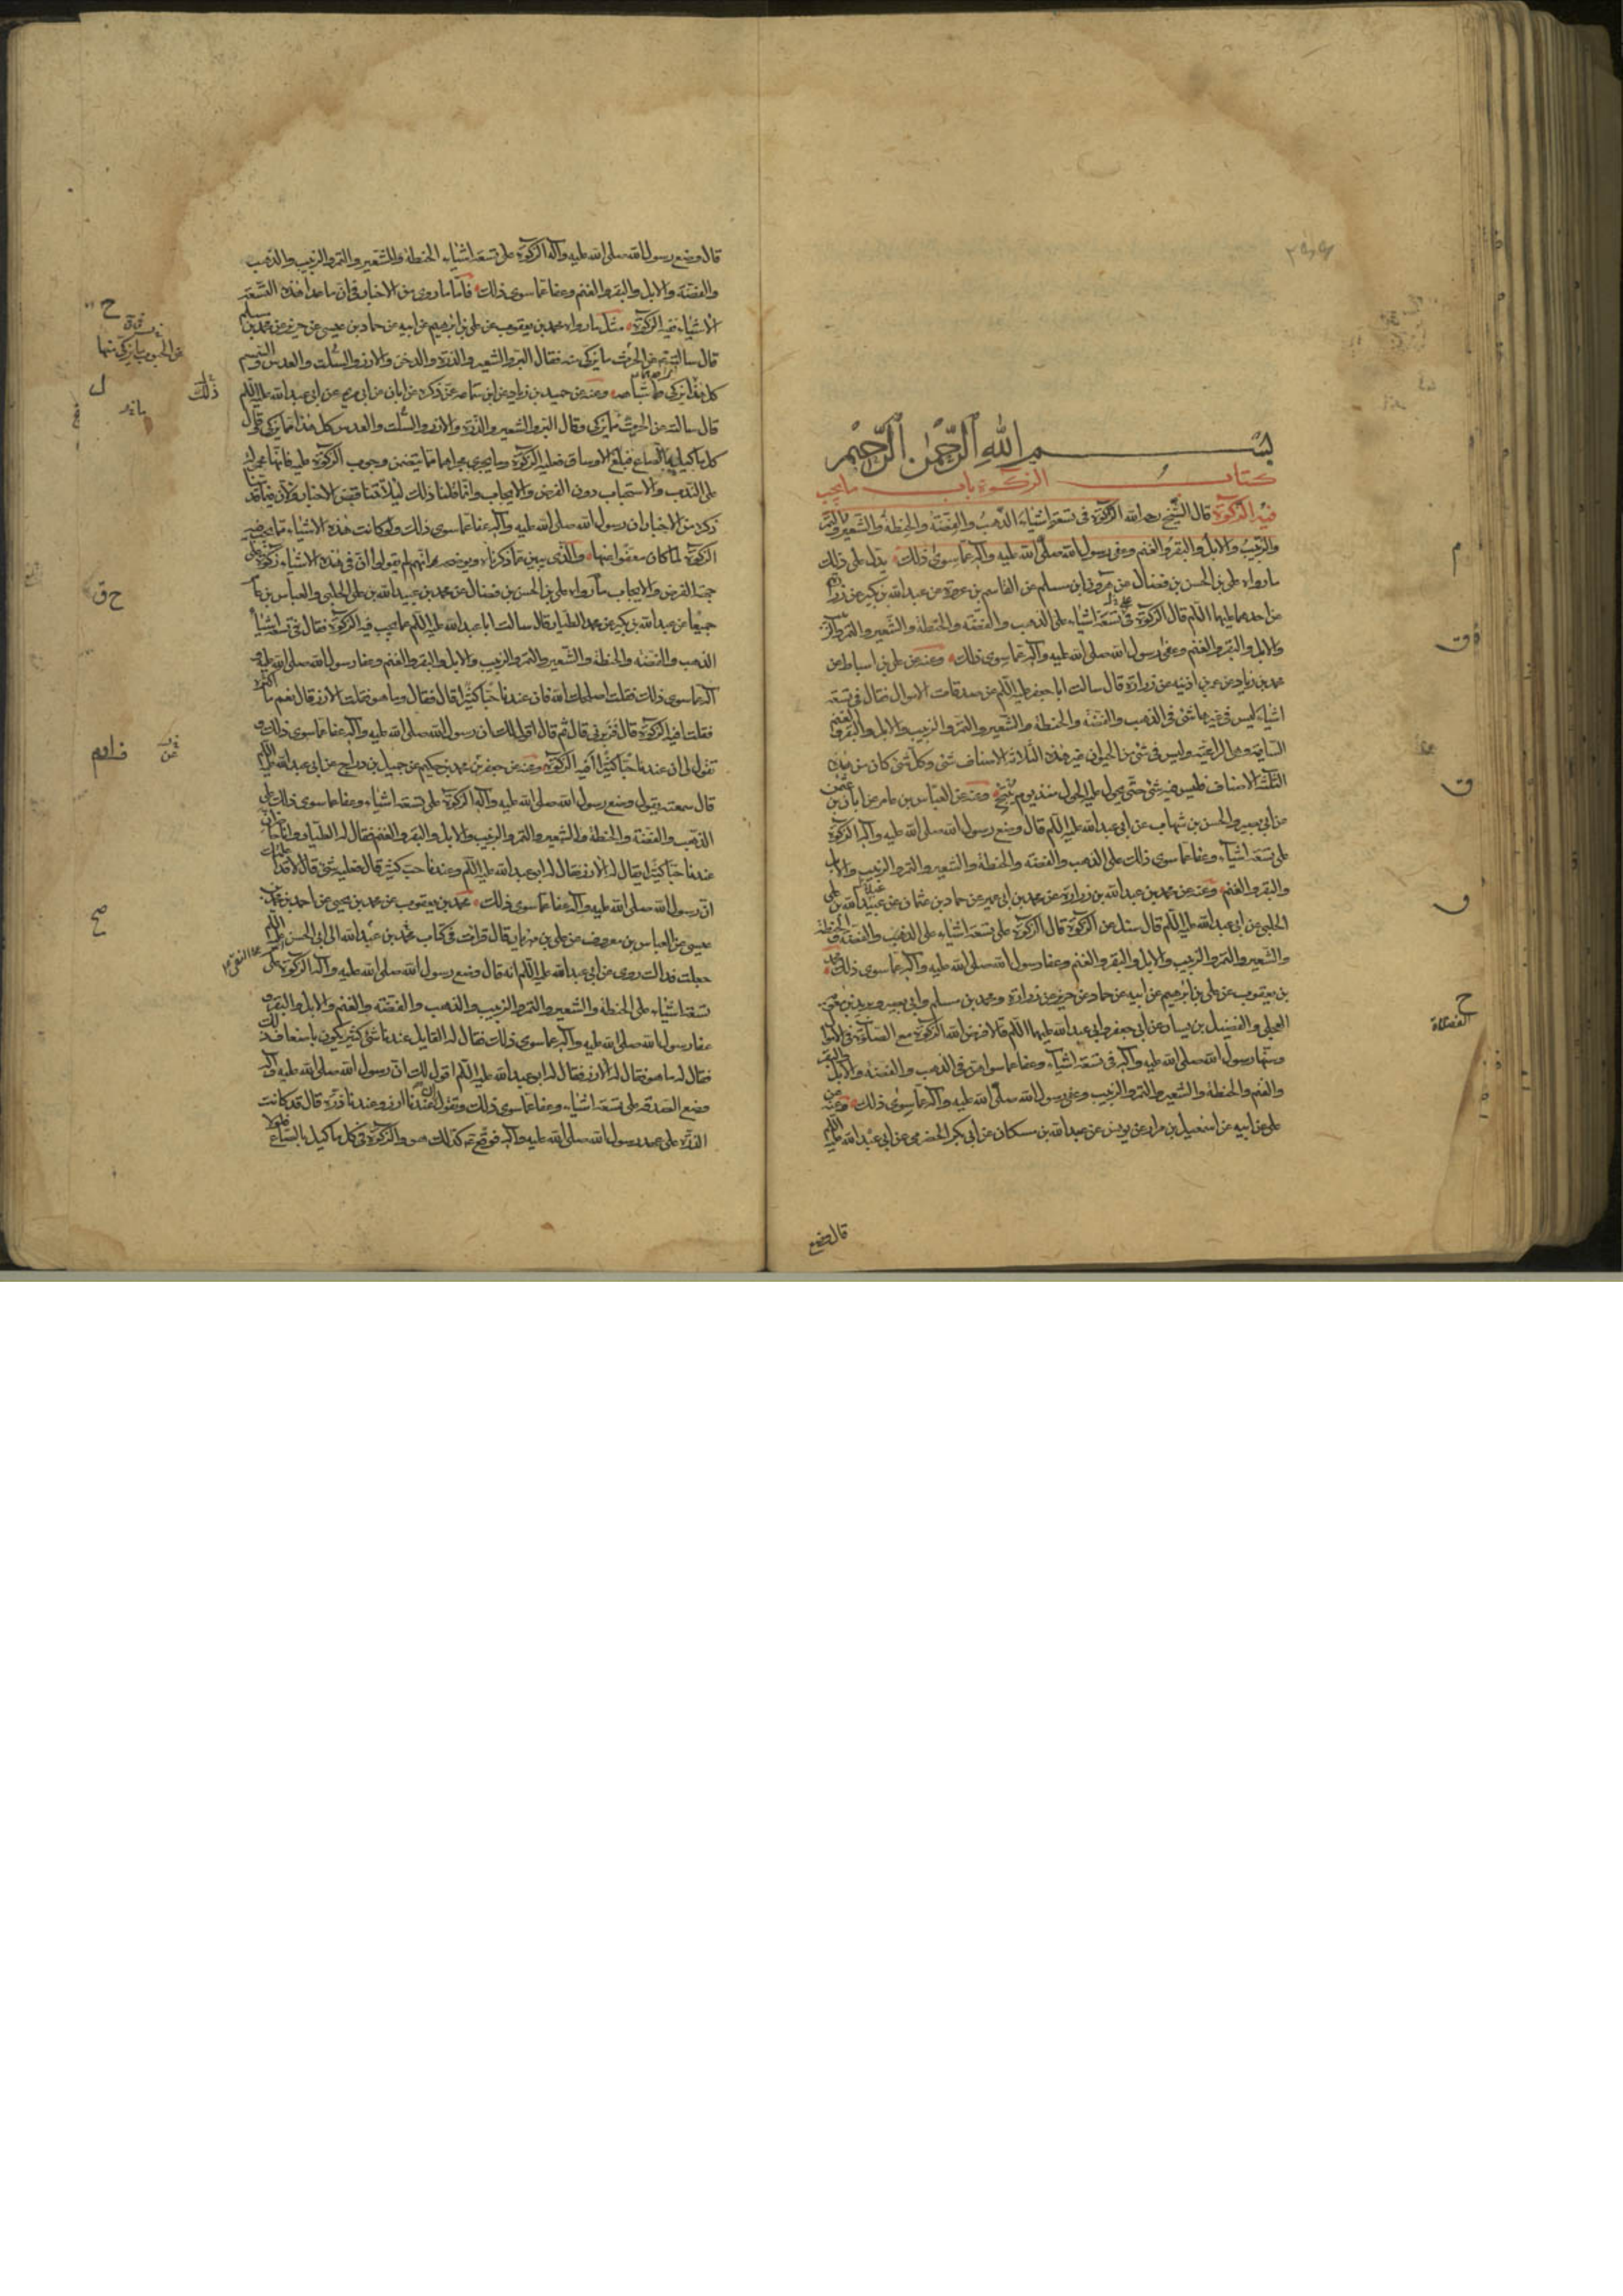 بسم الله الرحمن الرحيم
كتاب الزكوة باب ما يجب
فيه الزكوة قال الشيخ رحمه الله الزكوة فى تسعة اشياء الذهب والفضة والحنطة والشعير والتمر
والزبيب والابل والبقر والغنم وعفى رسول الله صلى الله عليه وآله عما سوى ذلك يدل على ذلك
ما رواه على بن الحسن بن فضال عن هرون بن مسلم عن القاسم بن عروة عن عبد الله بن بكير عن زرارة
عن احدهما عليهما السلم قال الزكوة فى تسعة اشياء على الذهب والفضة والحنطة والشعير والتمر والزبيب
والابل والبقر والغنم وعفى رسول الله صلى الله عليه وآله عما سوى ذلك وعنه عن على بن اسباط عن
محمد بن زياد عن عمر بن اذينه عن زرارة قال سالت ابا جعفر عليه السلم عن صدقات الاموال فقال فى تسعة
اشياء ليس فى غيرها شئ فى الذهب والفضة والحنطة والشعير والتمر والزبيب والابل والبقر والغنم
السايمة وهى الراعية وليس فى شئ من الحيوان غير هذه الثلاثة الاصناف شئ وكل شئ كان من هذه
الثلثة الاصناف فليس فيه شئ حتى يحول عليه الحول منذ يوم ينتج وعنه عن العباس بن عامر عن ابان بن عثمن
عن ابى بصير والحسن بن شهاب عن ابى عبد الله عليه السلم قال وضع رسول الله صلى الله عليه وآله الزكوة
على تسعة اشياء وعفا عما سوى ذلك على الذهب والفضة والحنطة والشعير والتمر والزبيب والابل
والبقر والغنم وعنه عن محمد بن عبد الله بن زرارة عن محمد بن ابى عمير عن حماد بن عثمان عن عبيد الله بن على
الحلبى عن ابى عبد الله عليه السلم قال سئل عن الزكوة قال الزكوة على تسعة اشياء على الذهب والفضة والحنطة
والشعير والتمر والزبيب والابل والبقر والغنم وعفا رسول الله صلى الله عليه وآله عما سوى ذلك محمد
بن يعقوب عن على بن ابرهيم عن ابيه عن حماد عن حريز عن زرارة ومحمد بن مسلم وابى بصير وبريد بن معوية
العجلى والفضيل بن يسار عن ابى جعفر وابى عبد الله عليهما السلم قالا فرض الله الزكوة مع الصلوة فى الاموال
وسنها رسول الله صلى الله عليه وآله فى تسعة اشياء وعفا عما سواهن فى الذهب والفضة والابل والبقر
والغنم والحنطة والشعير والتمر والزبيب وعفى رسول الله صلى الله عليه وآله عما سوى ذلك وعنه عن
على عن ابيه عن اسمعيل بن مرار عن يونس عن عبد الله بن مسكان عن ابى بكر الحضرمى عن ابى عبد الله عليه السلم
قال وضع
قال وضع رسول الله صلى الله عليه وآله الزكوة على تسعة اشياء الحنطة والشعير والتمر والزبيب والذهب
والفضة والابل والبقر والغنم وعفا عما سوى ذلك فاما ما روى من الاخبار فى ان ما عدا هذه التسعة
الاشياء فيه الزكوة مثل ما رواه محمد بن يعقوب عن على بن ابرهيم عن ابيه عن حماد بن عيسى عن حريز عن محمد بن مسلم
قال سالته عن الحرث ما يزكى منه فقال البر والشعير والذرة والدخن والارز والسلت والعدس والسمسم
كل هذا يزكى واشباهه وعنه عن حميد بن زياد عن ابن سماعه عمن ذكره عن ابان عن ابى مريم عن ابى عبد الله عليه السلم
قال سالته عن الحرث ما يزكى فقال البر والشعير والذرة والارز والسلت والعدس كل هذا مما يزكى وقال
كل ما كيل بالصاع فبلغ الاوساق فعليه الزكوة وما يجرى مجراهما مما يتضمن وجوب الزكوة عليه فانها محمولة
على الندب والاستحباب دون الفرض والايجاب وانما قلنا ذلك لئلا تتناقض الاخبار ولان فيما قدمنا
ذكره من الاخبار ان رسول الله صلى الله عليه وآله عفا عما سوى ذلك ولو كانت هذه الاشياء مما يجب فيه
الزكوة لما كان معفوا عنها والذى يبين ما ذكرناه ويوضحه انهم لم يقولوا ان فى هذه الاشياء زكوة على
جهة الفرض والايجاب ما رواه على بن الحسن بن فضال عن محمد بن عبيد الله بن على الحلبى والعباس بن عامر
جميعا عن عبد الله بن بكير عن محمد الطيار قال سالت ابا عبد الله عليه السلم عما يجب فيه الزكوة فقال فى تسعة اشياء
الذهب والفضة والحنطة والشعير والتمر والزبيب والابل والبقر والغنم وعفا رسول الله صلى الله عليه و
آله عما سوى ذلك فقلت اصلحك الله فان عندنا حبا كثيرا قال فقال وما هو فقلت الارز قال نعم ما اكثره
فقلت افيه الزكوة قال فزبرنى قال ثم قال اقول لك ان رسول الله صلى الله عليه وآله عفا عما سوى ذلك و
تقول لى ان عندنا حبا كثيرا افيه الزكوة وعنه عن جعفر بن محمد بن حكيم عن جميل بن دراج عن ابى عبد الله عليه السلم
قال سمعته يقول وضع رسول الله صلى الله عليه وآله الزكوة على تسعة اشياء وعفا عما سوى ذلك على
الذهب والفضة والحنطة والشعير والتمر والزبيب والابل والبقر والغنم فقال له الطيار وانا حاضر ان
عندنا حبا كثيرا يقال له الارز فقال له ابو عبد الله عليه السلم وعندنا حب كثير قال فعليه شئ قال لا قد اعلمتك
ان رسول الله صلى الله عليه وآله عفا عما سوى ذلك محمد بن يعقوب عن محمد بن يحيى عن احمد بن محمد بن
عيسى عن العباس بن معروف عن على بن مهزيار قال قرات فى كتاب عبد الله بن محمد الى ابى الحسن عليه السلم
جعلت فداك روى عن ابى عبد الله عليه السلم انه قال وضع رسول الله صلى الله عليه وآله الزكوة على
تسعة اشياء على الحنطة والشعير والتمر والزبيب والذهب والفضة والغنم والابل والبقر و
عفا رسول الله صلى الله عليه وآله عما سوى ذلك فقال له القايل عندنا شئ كثير يكون باضعاف ذلك
فقال له ما هو فقال له الارز فقال له ابو عبد الله عليه السلم اقول لك ان رسول الله صلى الله عليه وآله
وضع الصدقه على تسعة اشياء وعفا عما سوى ذلك وتقول ان عندنا ارز وعندنا ذرة قال قد كانت
الذرة على عهد رسول الله صلى الله عليه وآله فوقع عم كذلك هو والزكوة فى كل ما كيل بالصاع